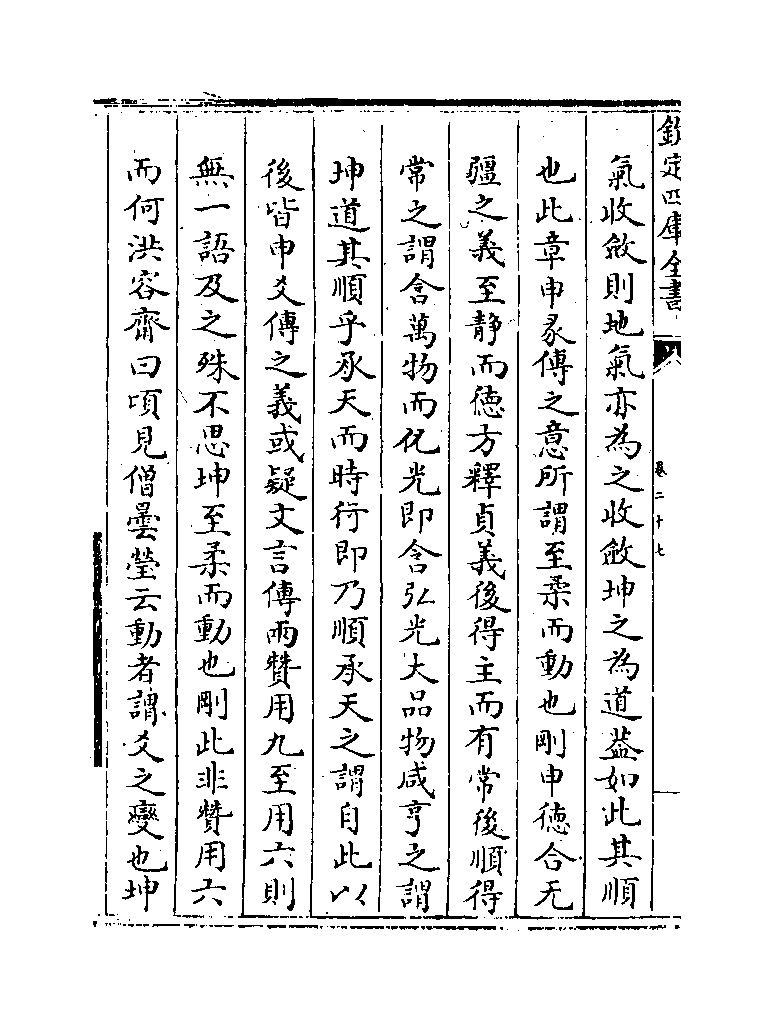 欽定四庫全書
卷二十七
氣收斂則地氣亦為之收斂坤之為道葢如此其順
也此章申彖傳之意所謂至柔而動也剛申德合无
疆之義至静而德方釋貞義後得主而有常後順得
常之謂含萬物而化光即含弘光大品物咸亨之謂
坤道其順乎承天而時行即乃順承天之謂自此以
後皆申爻傳之義或疑文言傳兩贊用九至用六則
無一語及之殊不思坤至柔而動也剛此非贊用六
而何洪容齋曰頃見僧曇瑩云動者謂爻之變也坤